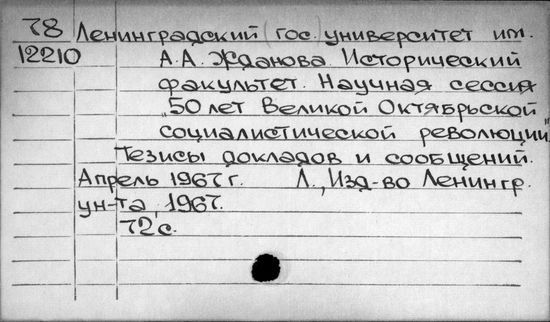 78 Ленинградский гос. университет им.
12210 А.А. Жданова. Исторический
факультет. Научная сессия
„50 лет Великой Октябрьской
социалистической революции".
Тезисы докладов и сообщений.
Апрель 1967 г. Л., Изд-во Ленингр.
ун-та, 1967.
72 с.